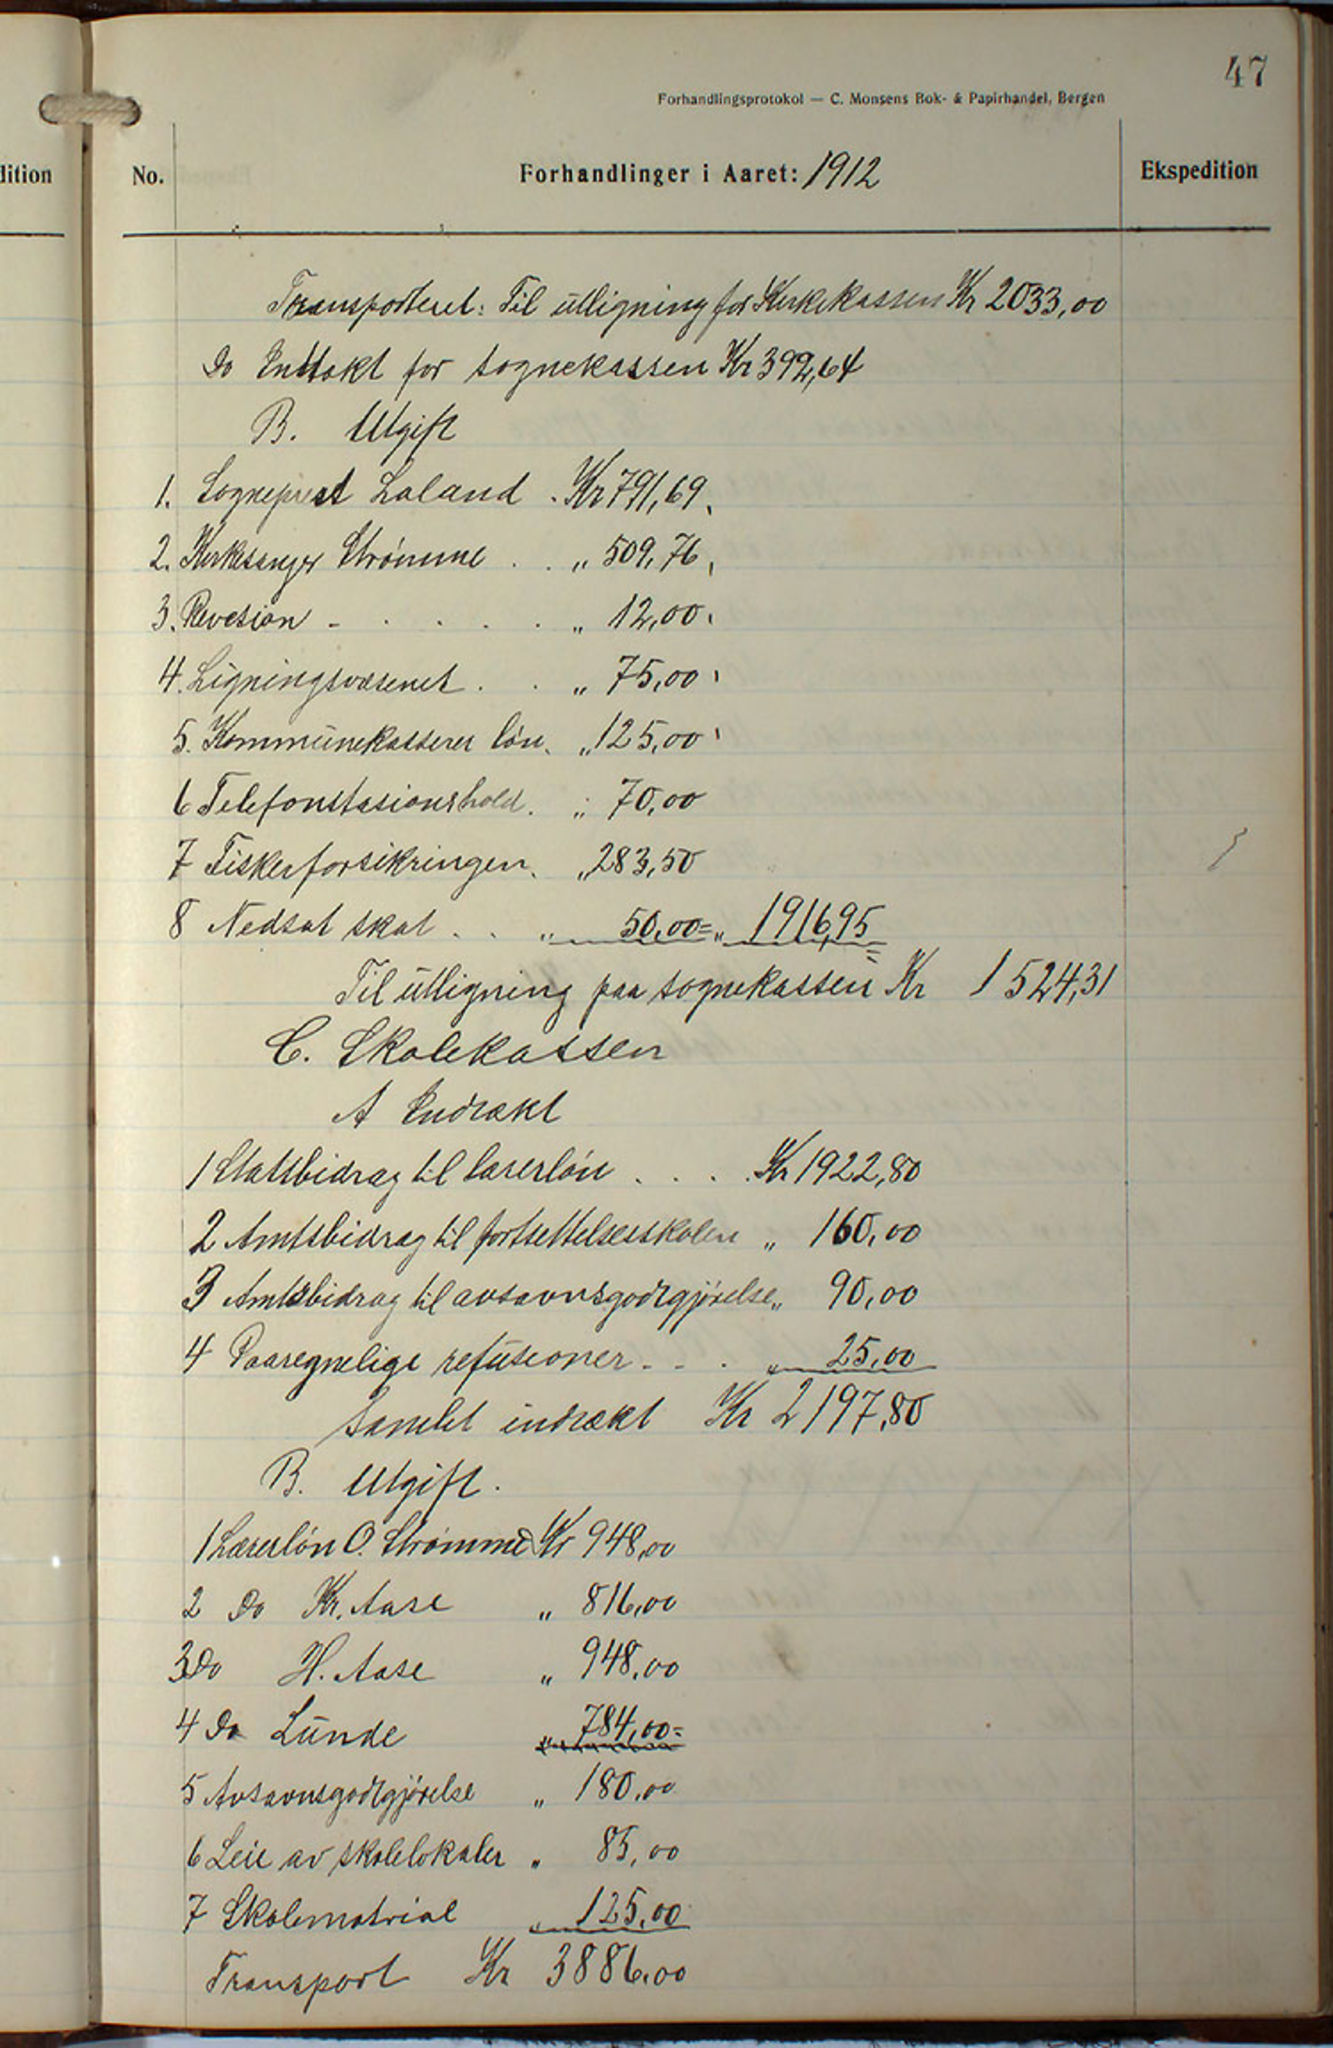 47
Forhandlingsprotokol — C. Monsens Bok- & Papirhandel, Bergen
dition
No.
Forhandlinger i Aaret: 1912
Ekspedition
Transporteret: Til utligning for Kirkekassen Kr 2033,00
Do Indtækt for sognekassen Kr 392,64
B. Utgift
1. Sogneprest Laland . Kr 791,69.
2. Kirkesanger Strømme . . „ 509,76,
3. Revesion - . . . . „ 12,00.
4. Ligningsvæsenet . . „ 75,00
5. Kommunekasserer løn. „ 125,00
6 Telefonstasionshold. „ 70,00
7 Fiskerforsikringen. „ 283,50
8 Nedsat skat . . „ 50,00 = „ 1916,95
Til utligning paa sognekassen Kr 1524,31
C. Skolekassen
A Indtækt
1 Statsbidrag til lærerløn . . . . Kr 1922,80
2 Amtsbidrag til fortsettelsesskolen „ 160,00
3 Amtsbidrag til avsavnsgodtgjørelse „ 90,00
4 Paaregnelige refusioner - - . „ 25,00
Samlet indtækt Kr 2197,80
B. Utgift.
1 Lærerløn O. Strømme Kr 948,00
2 Do Kr. Aase „ 816,00
3 Do H. Aase „ 948,00
4 Do Lunde „ 784,00 =
5 Avsavnsgodtgjørelse „ 180,00
6 Leie av skolelokaler „ 85,00
7 Skolematrial „ 125,00
Transport Kr 3886,00